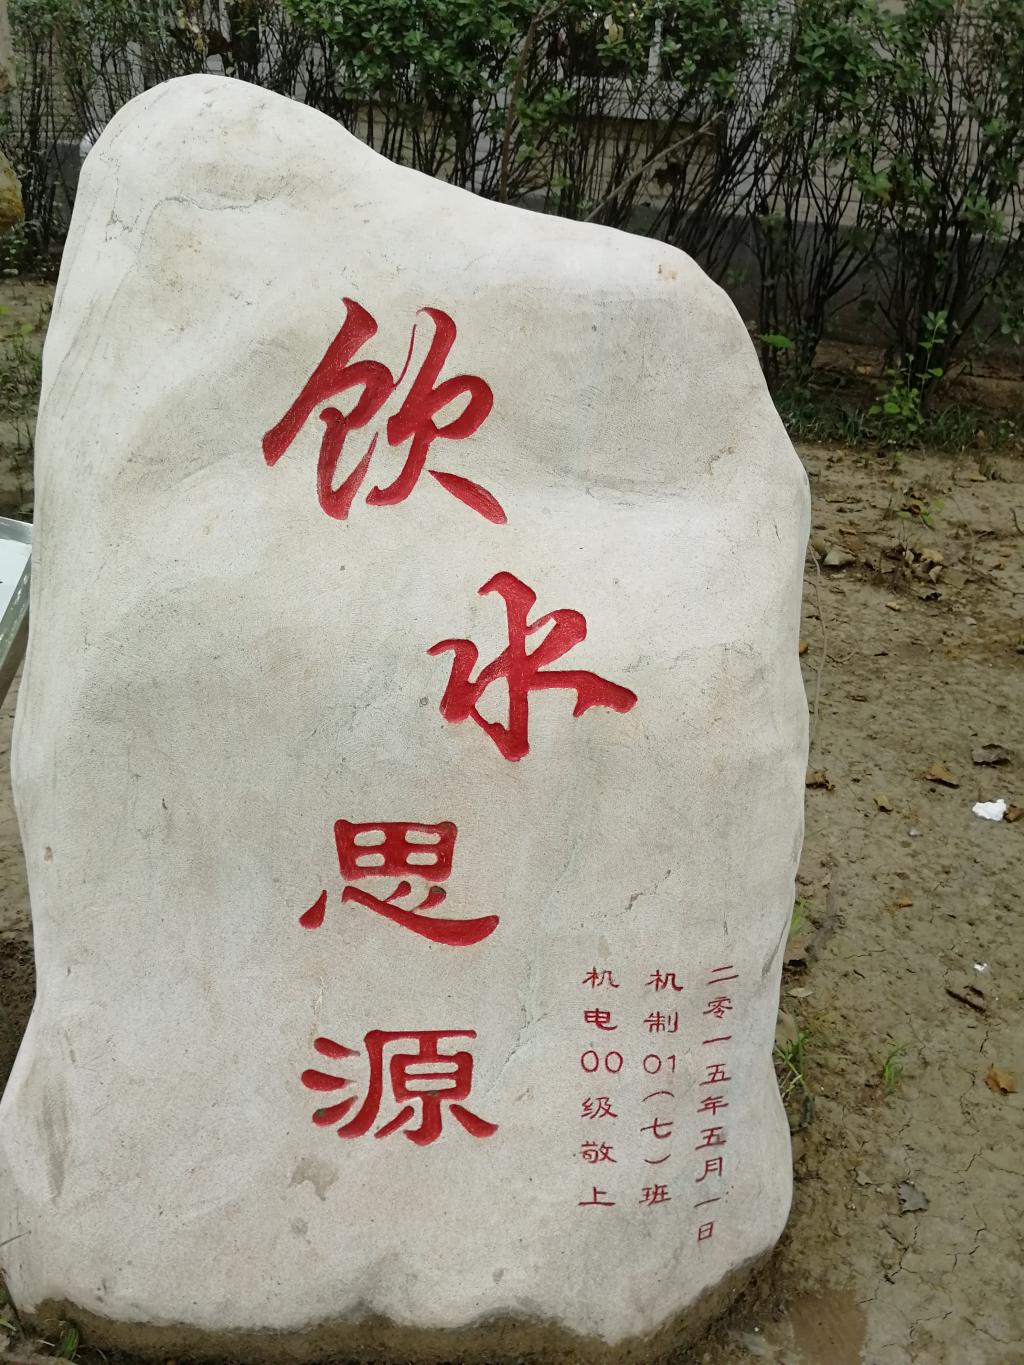 饮水思源
二零一五年五月一日
机制01(七)班
机电00级敬上